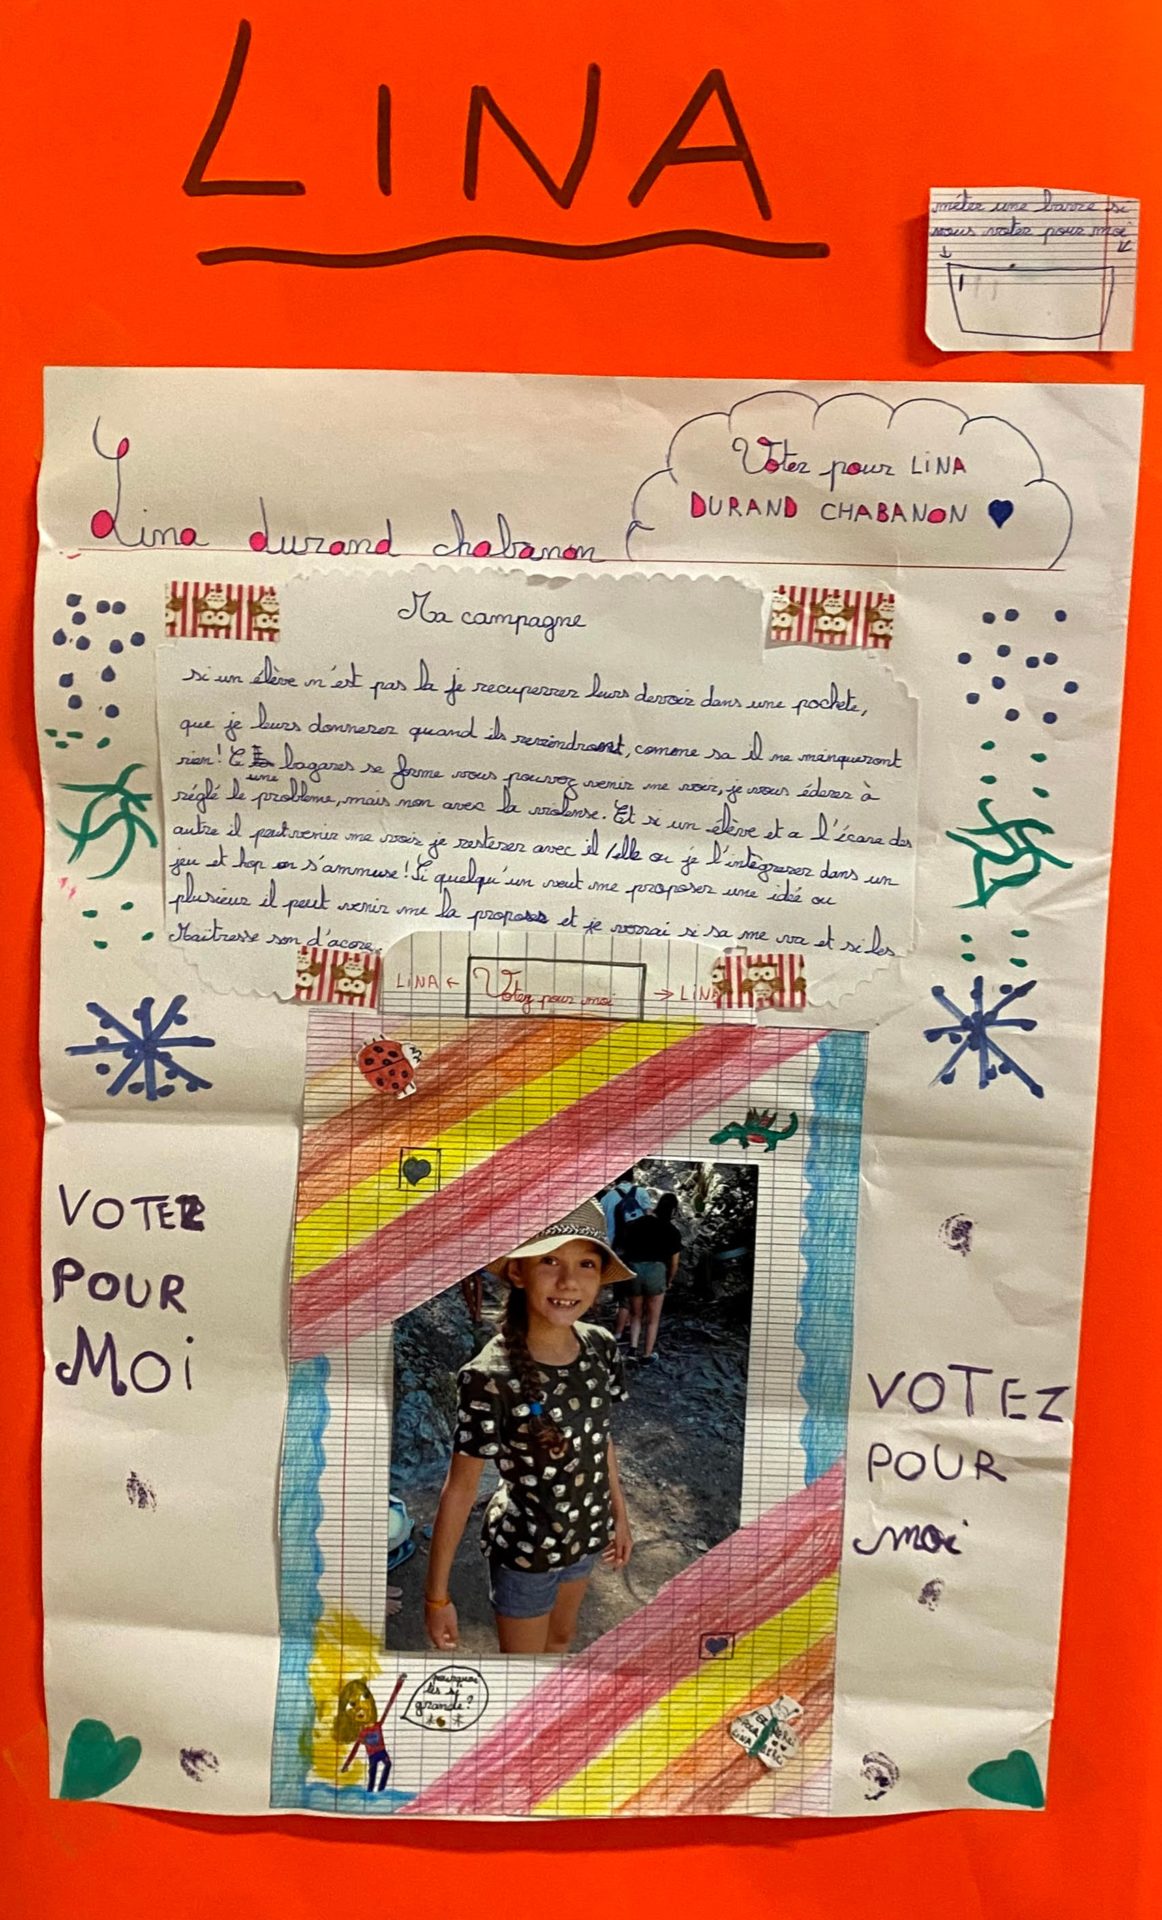 LINA
méter une barre si
vous voter pour moi
Votez pour LiNA
DURAND CHABANON
Lina durand chabanon
Ma campagne
si un élève n'est pas la je recuperrez leurs devoir dans une pochete,
que je leurs donnerez quand ils revindront, comme sa il ne manqueront
rien! bagares se forme vous pouvez venir me voir, je vous éderez à
une
réglé le probleme, mais non avec la violense. Et si un élève et a l'écare des
autre il peut venir me voir je resterez avec il/elle ou je l'intègrerez dans un
jeu et hop on s'ammuse! Si quelqu'un veut me proposer une idéé ou
plusieur il peut venir me la proposer et je verrai si sa me va et si les
Maitresse son d'acore.
LiNA ← Votez pour moi → LiNA
VOTEZ
POUR
MOi
VOTEZ
POUR
moi
pourquoi
grande?